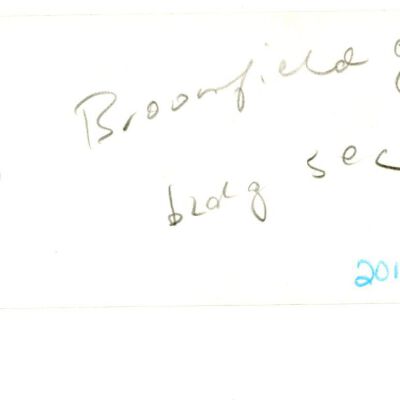 Broomfield
bldg sec
201